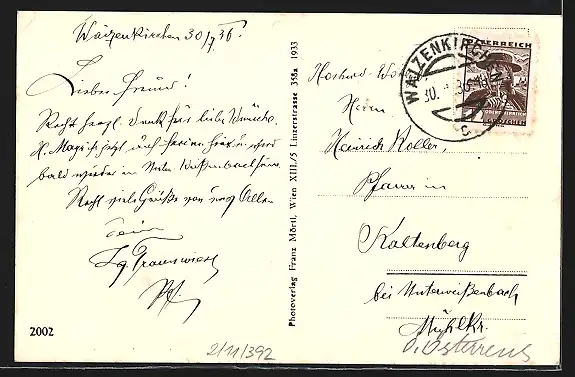 Waizenkirchen 30/7 36.
Lieber Freund!
Recht herzl. Dank für liebe Wünsche.
H. ist jetzt auf Ferien hier u. wird
bald wieder in Unter Weißenbach sein.
Recht viele Grüße von uns Allen
Dein
2002
2/11/392
Photoverlag Franz Mörtl, Wien XIII./5 Linzerstrasse 358a 1933
WAIZENKIRCHEN
30.
c
ÖSTERREICH
Herrn
Heinrich Koller,
Pfarrer in
Kaltenberg
bei Unterweißenbach
Mühlkr.